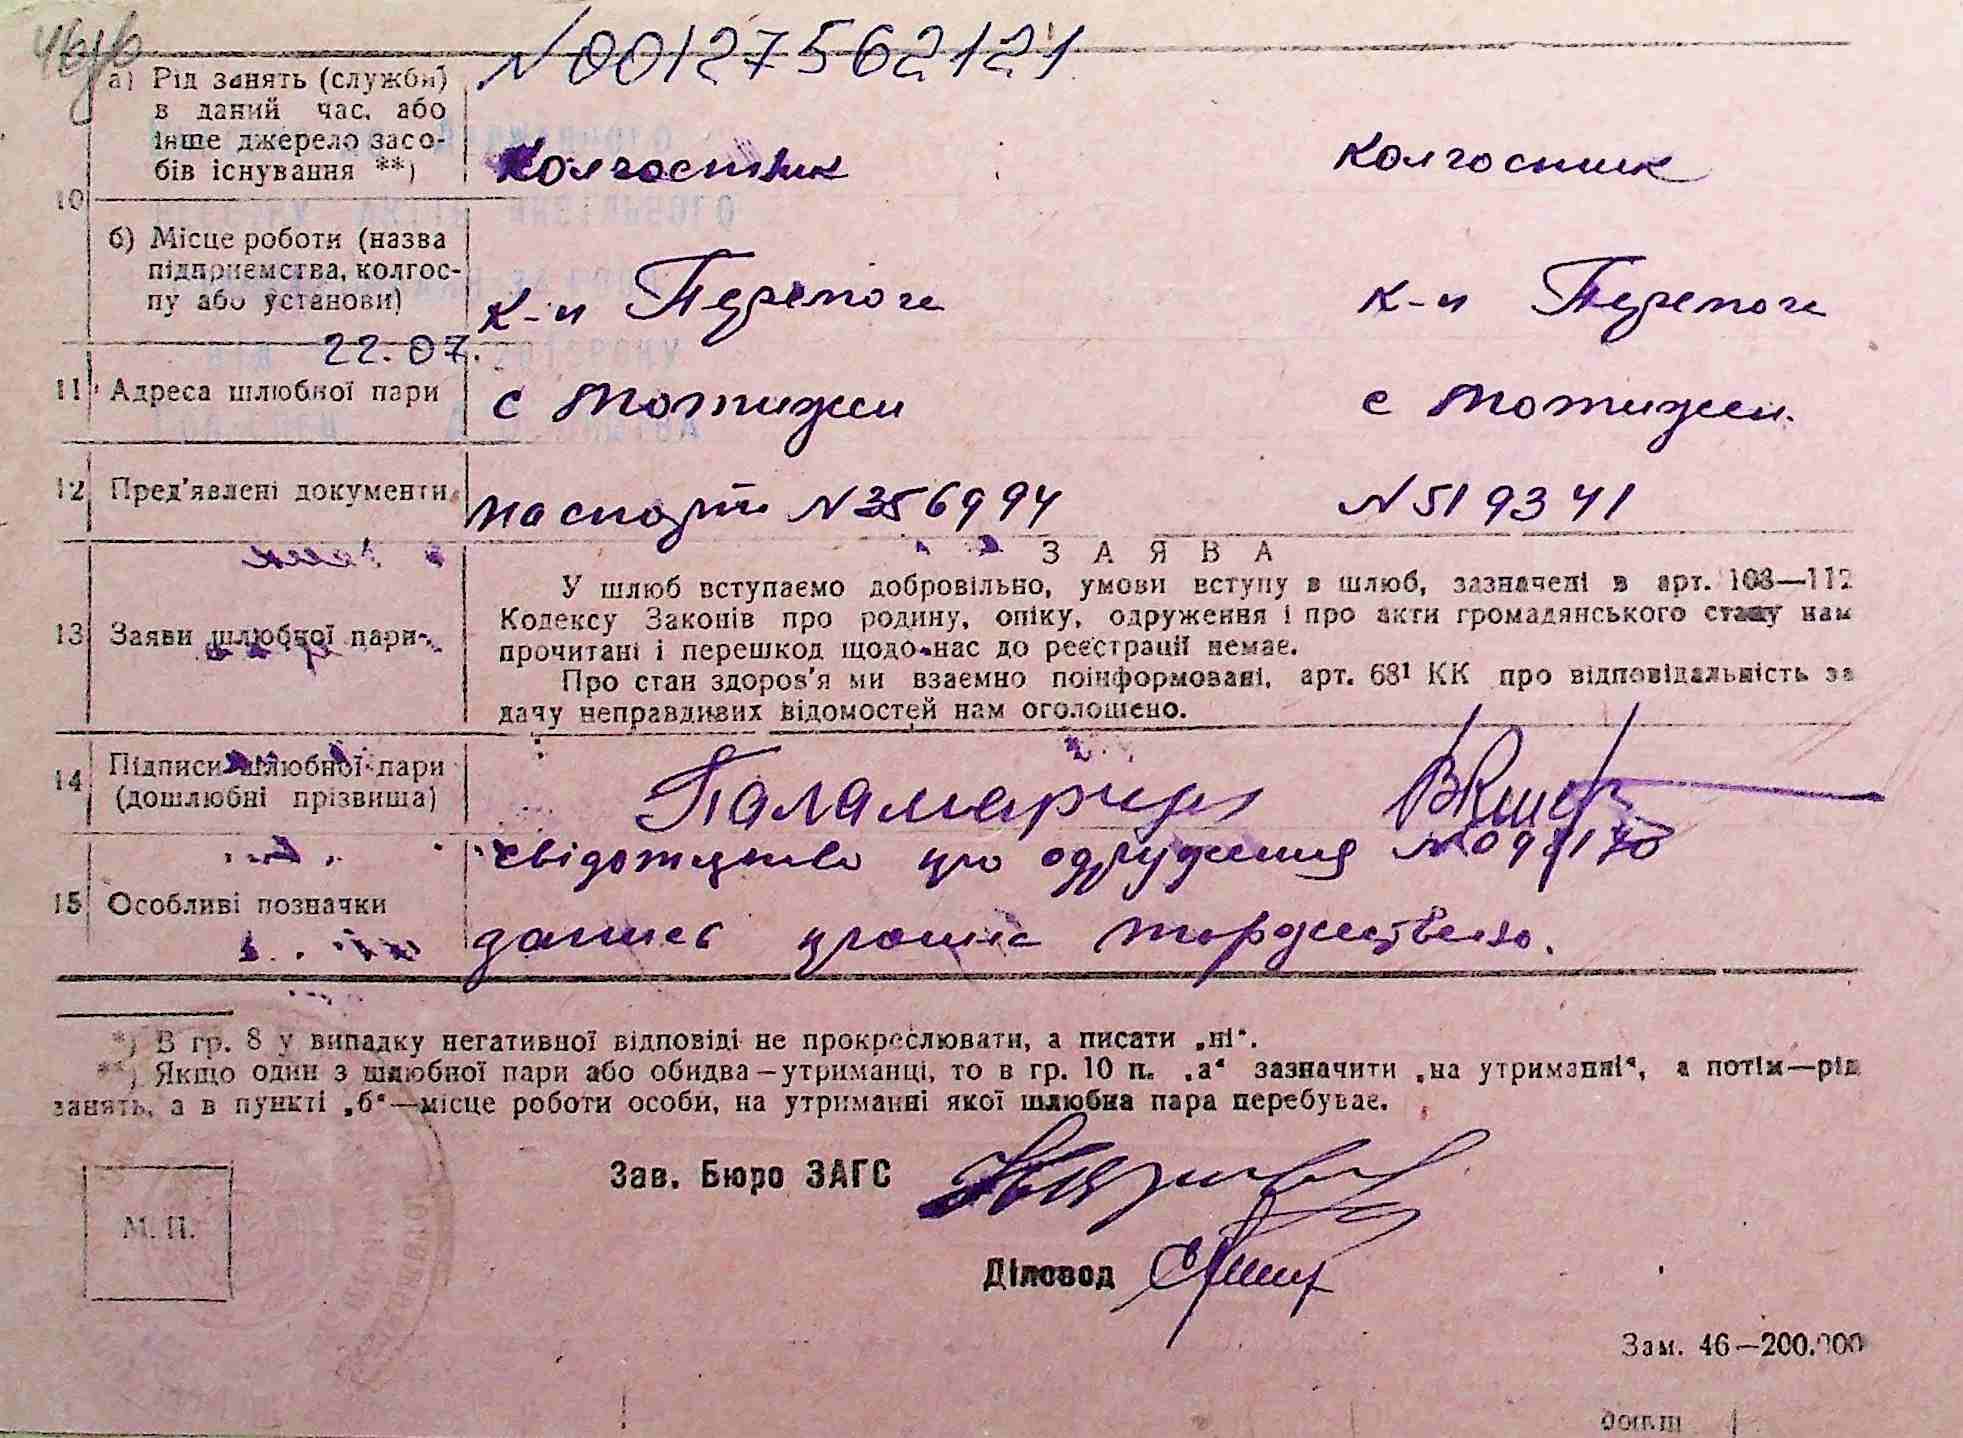 №00127562121
а) Рід занять (служби)
в даний час, або
інше джерело засо-
бів існування **)
Колгоспник Колгоспник
10
б) Місце роботи (назва
підприємства, колгос-
пу або установи)
к-п Перемога к-п Перемога
22.07.
11 Адреса шлюбної пари с Мотижин с Мотижин.
12 Пред'явлені документи паспорти №356994 №519341
ЗАЯВА
У шлюб вступаємо добровільно, умови вступу в шлюб, зазначені в арт. 108—112
Кодексу Законів про родину, опіку, одруження і про акти громадянського стану нам
13 Заяви шлюбної пари прочитані і перешкод щодо нас до реєстрації немає.
Про стан здоров'я ми взаємно поінформовані, арт. 68¹ КК про відповідальність за
дачу неправдивих відомостей нам оголошено.
14 Підписи шлюбної пари
(дошлюбні прізвища)
свідоцтво про одруження
15 Особливі позначки
запис торжественно.
*) В гр. 8 у випадку негативної відповіді не прокреслювати, а писати „ні“.
**) Якщо один з шлюбної пари або обидва—утриманці, то в гр. 10 п. „а“ зазначити „на утриманні“, а потім—рід
занять, а в пункті „б“—місце роботи особи, на утриманні якої шлюбна пара перебуває.
Зав. Бюро ЗАГС
М. П.
Діловод
Зам. 46—200.000